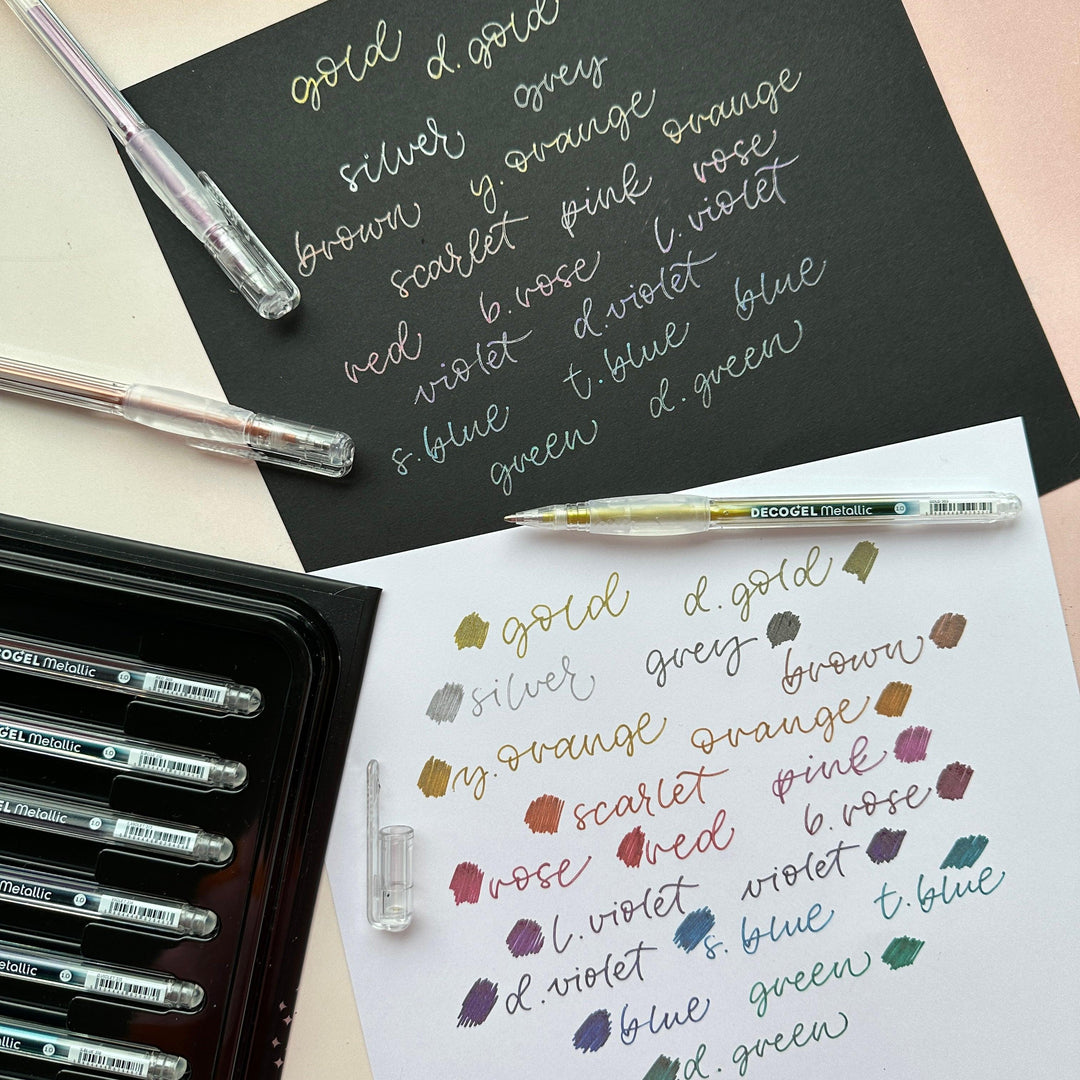 gold d.gold
silver grey
brown y.orange orange
scarlet pink rose
red b.rose l.violet
violet d.violet
s.blue t.blue blue
green d.green
DECOGEL Metallic 10
gold d.gold
silver grey brown
y.orange orange
scarlet pink
rose red b.rose
l.violet violet
d.violet s.blue t.blue
blue green
d.green
COGEL Metallic 10
GEL Metallic 10
GEL Metallic 10
Metallic 10
etallic 10
tallic 10